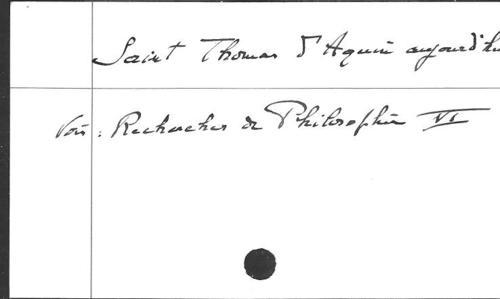 Saint Thomas d'Aquin aujourd'hu
Voir : Recherches de Philosophie VI